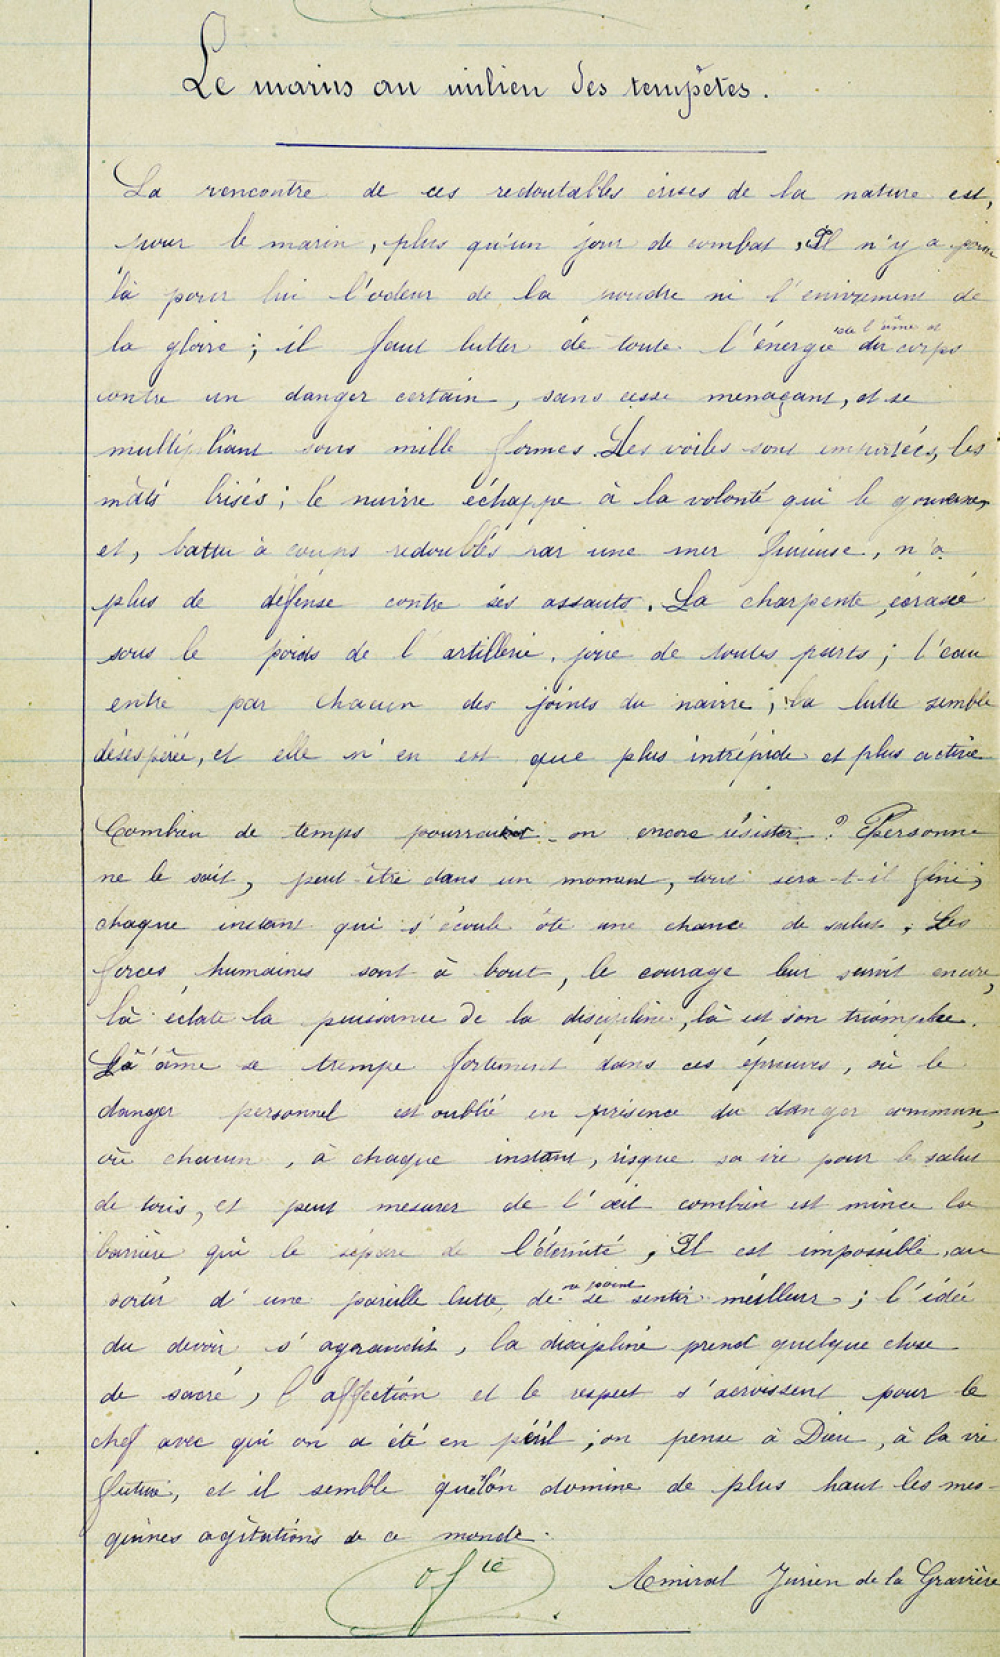 Le marins au milieu des tempêtes.
La rencontre de ces redoutables crises de la nature est,
pour le marin, plus qu'un jour de combat, Il n'y a point
là pour lui l'odeur de la poudre ni l'enivrement de
la gloire ; il faut lutter de toute l'énergie de l'âme et du corps
contre un danger certain, sans cesse menaçant, et se
multipliant sous mille formes. Les voiles sont emportées, les
mâts brisés ; le navire échappe à la volonté qui le gouverne,
et, battu à coups redoublés par une mer furieuse, n'a
plus de défense contre ses assauts. La charpente, écrasée
sous le poids de l'artillerie, joue de toutes parts ; l'eau
entre par chacun des joints du navire ; la lutte semble
désespérée, et elle n'en est que plus intrépide et plus active
Combien de temps pourra-on encore résister ? Personne
ne le sait, peut-être dans un moment, tout sera-t-il fini,
chaque instant qui s'écoule ôte une chance de salut ; Les
forces humaines sont à bout, le courage leur survit encore,
là éclate la puissance de la discipline, là est son triomphe.
L'âme se trempe fortement dans ces épreuves, où le
danger personnel est oublié en présence du danger commun,
où chacun, à chaque instant, risque sa vie pour le salut
de tous, et peut mesurer de l'œil combien est mince la
barrière qui le sépare de l'éternité, Il est impossible, au
sortir d'une pareille lutte, de ne point se sentir meilleur ; l'idée
du devoir s'agrandit, la discipline prend quelque chose
de sacré, l'affection et le respect s'accroissent pour le
chef avec qui on a été en péril ; on pense à Dieu, à la vie
future, et il semble qu'on domine de plus haut les mes-
quines agitations de ce monde.
Amiral Jurien de la Gravière